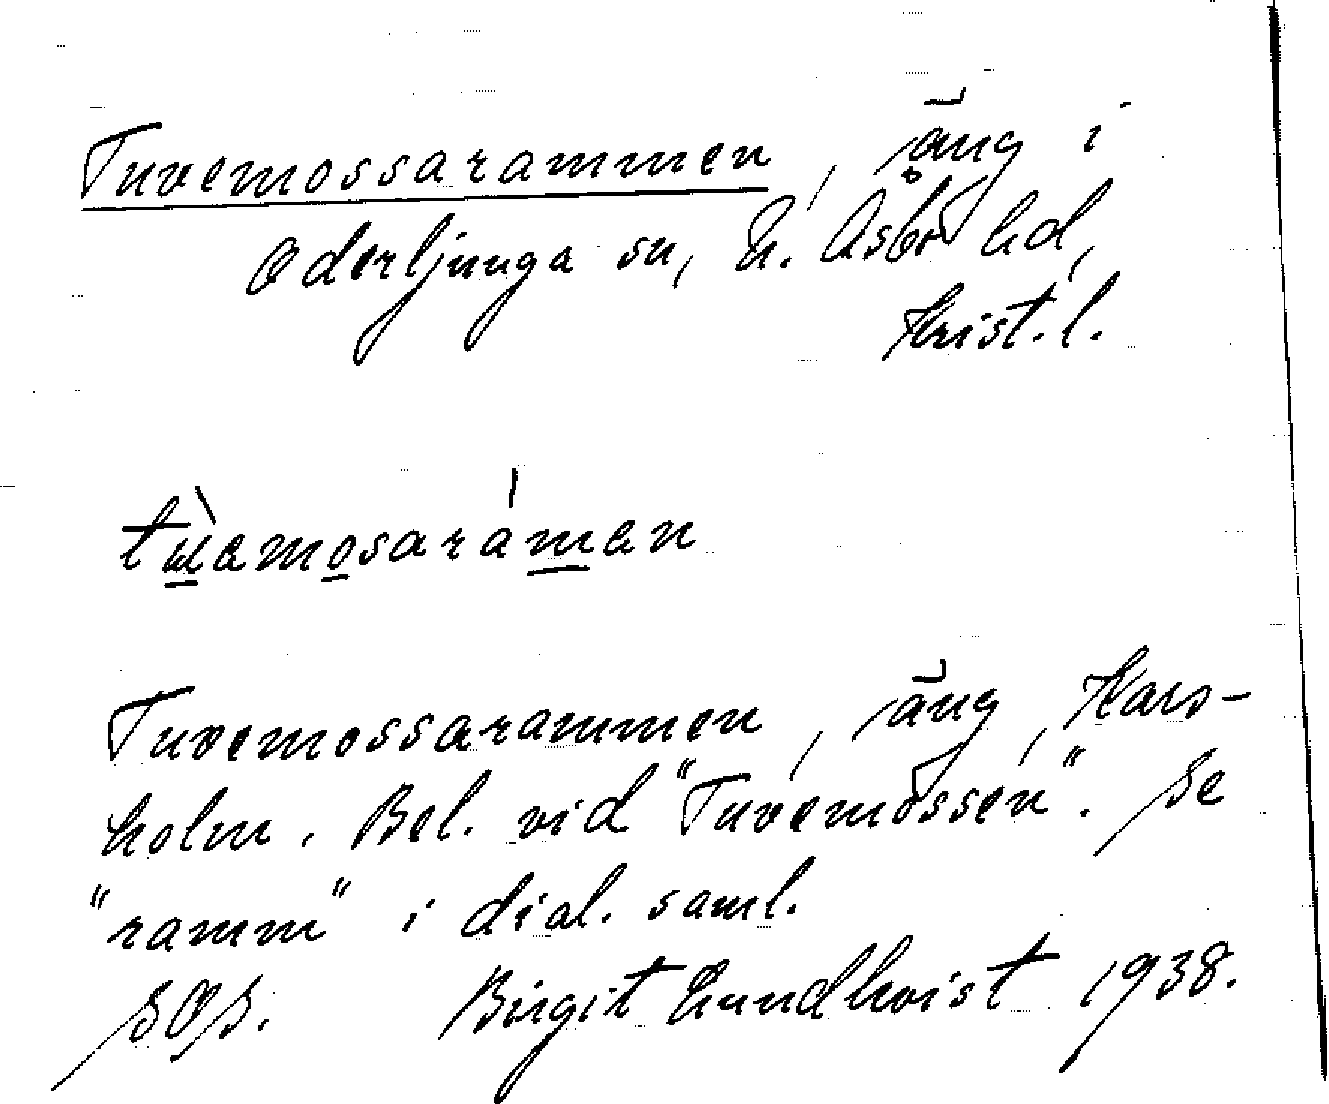 Tuvemossarammen, äng i
Oderljunga sn, N. Åsbo hd,
Krist. l.
tùemosaráman
Tuvemossarammen, äng, Kars-
holm. Bel. vid "Tuvemossen". Se
"ramm" i dial. saml.
SOS. Birgit Lundkvist 1938.